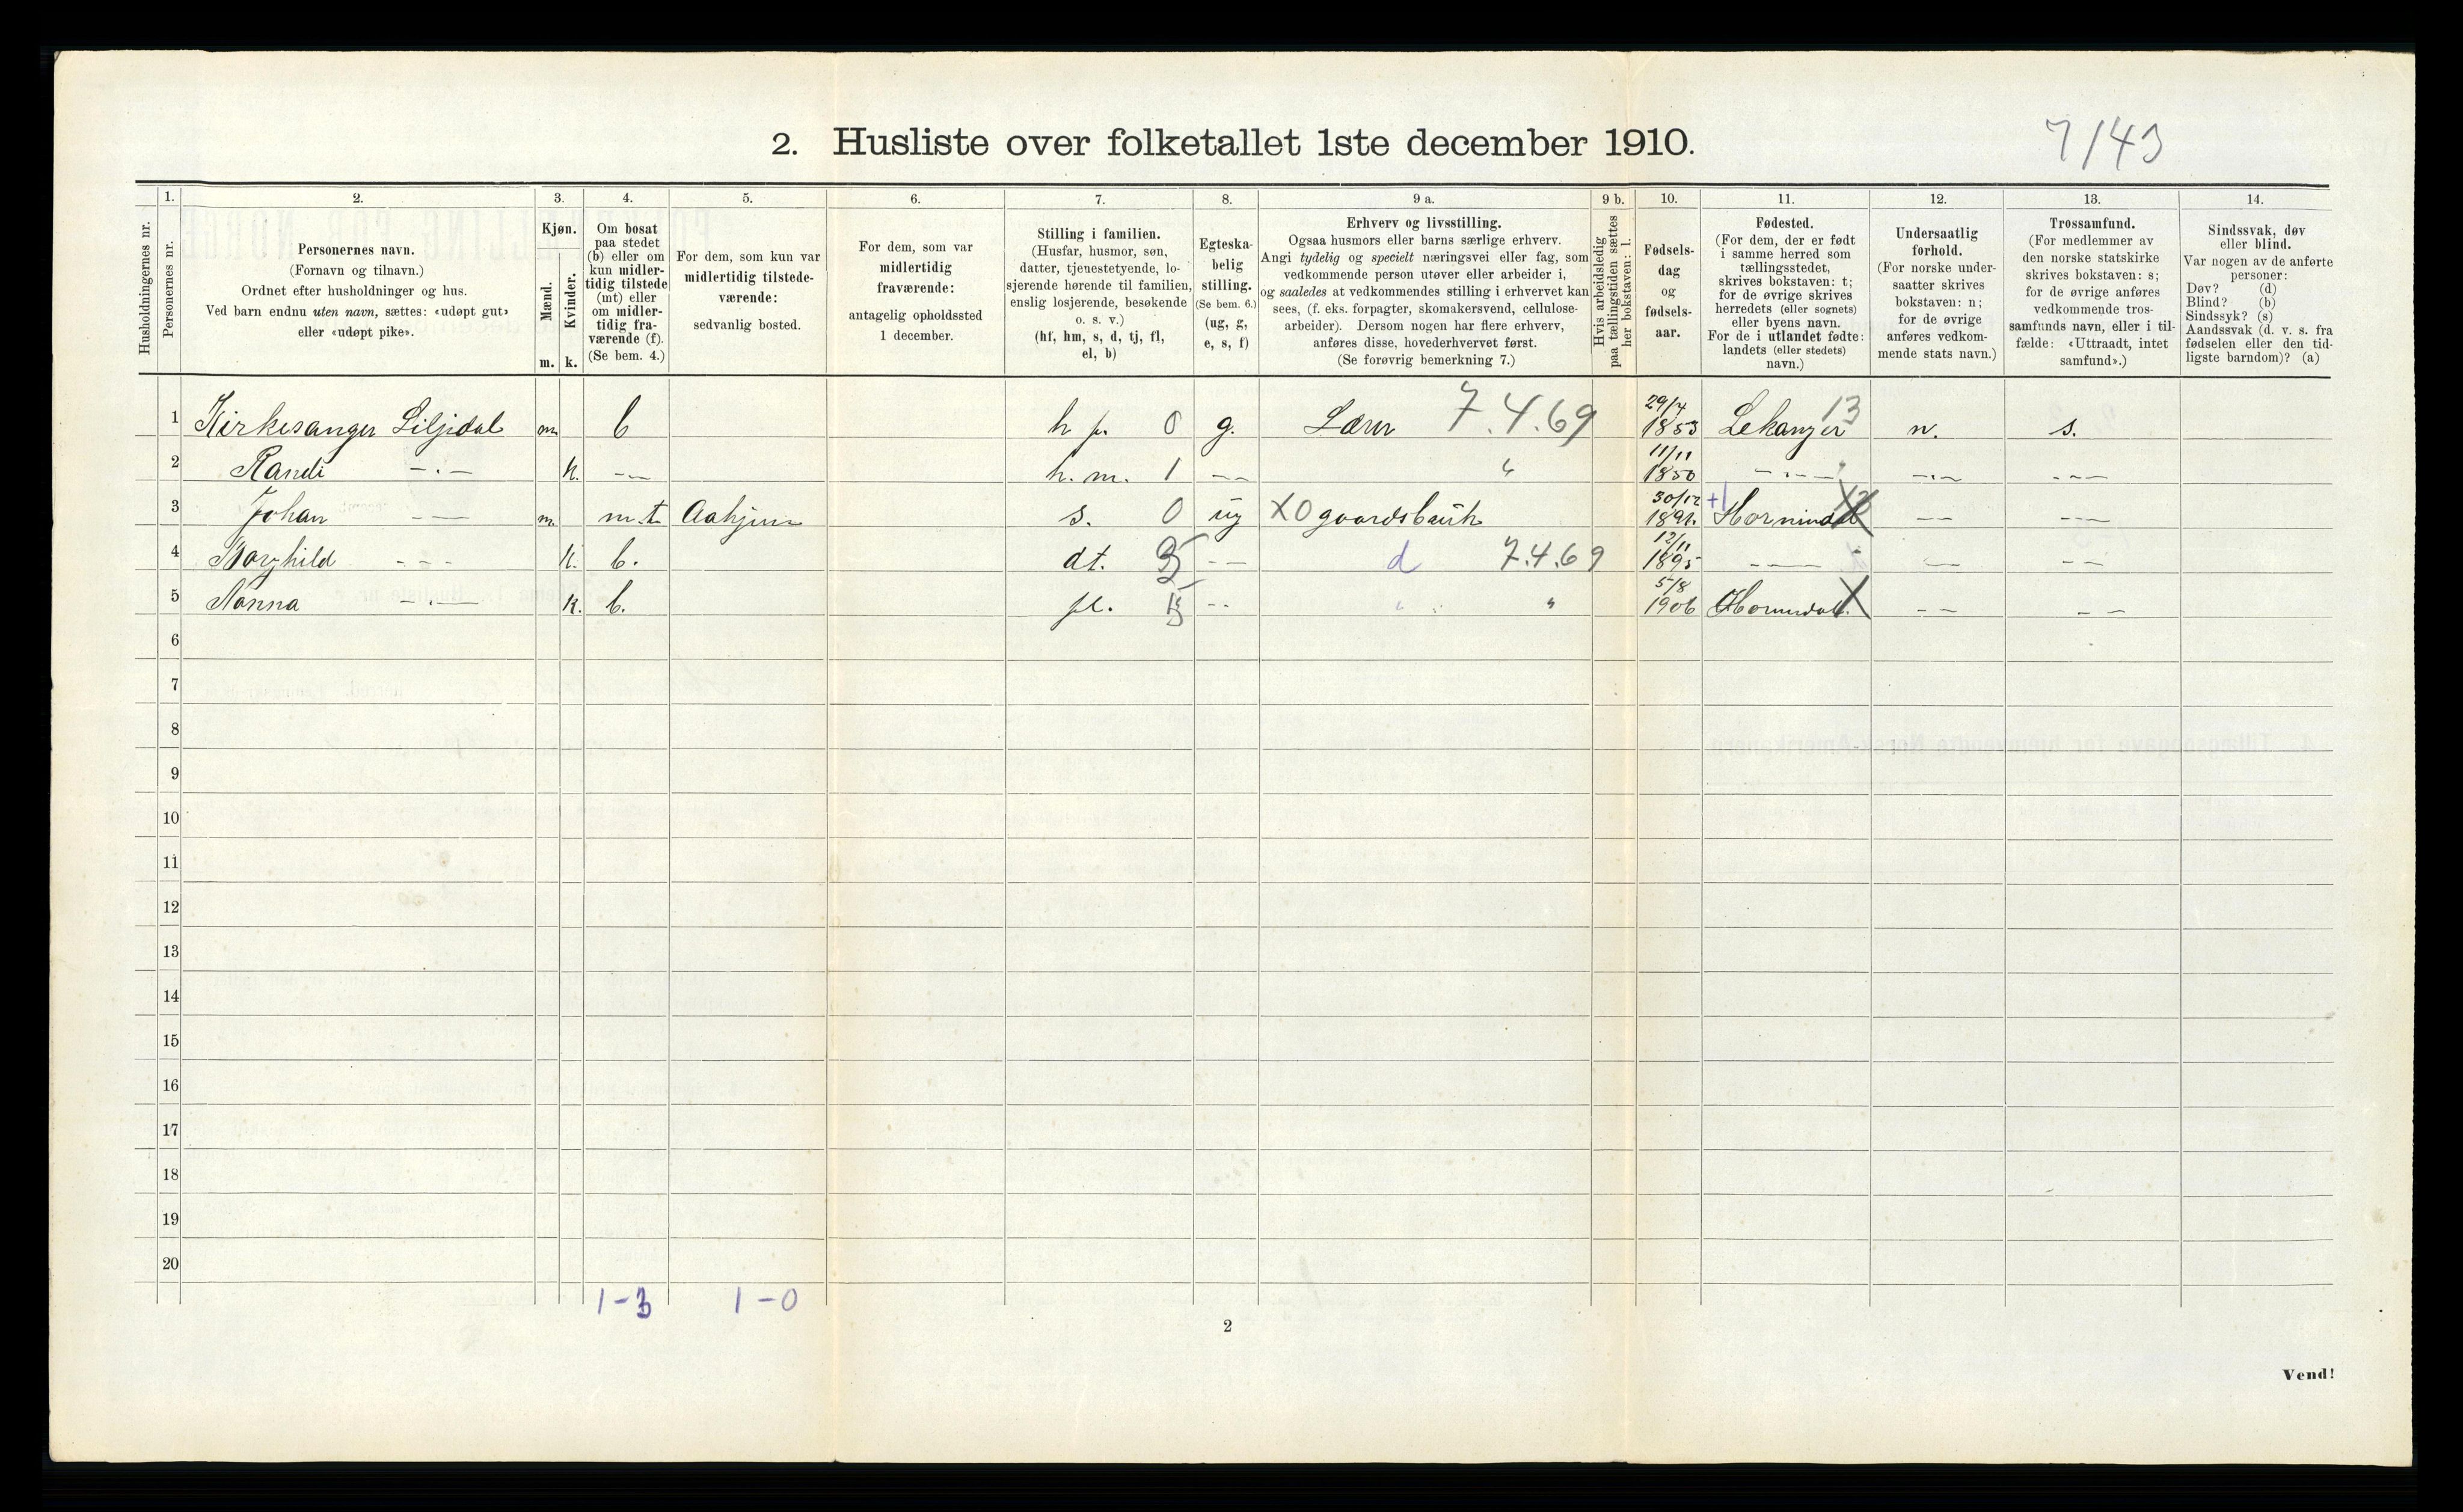 2. Husliste over folketallet 1ste december 1910.
7/43
Husholdningernes nr.
1.
Personernes nr.
2.
Personernes navn.
(Fornavn og tilnavn.)
Ordnet efter husholdninger og hus.
Ved barn endnu uten navn, sættes: «udøpt gut»
eller «udøpt pike».
3.
Kjøn.
Mænd.
Kvinder.
m. k.
4.
Om bosat
paa stedet
(b) eller om
kun midler-
tidig tilstede
(mt) eller
om midler-
tidig fra-
værende (f).
(Se bem. 4.)
5.
For dem, som kun var
midlertidig tilstede-
værende:
sedvanlig bosted.
6.
For dem, som var
midlertidig
fraværende:
antagelig opholdssted
1 december.
7.
Stilling i familien.
(Husfar, husmor, søn,
datter, tjenestetyende, lo-
sjerende hørende til familien,
enslig losjerende, besøkende
o. s. v.)
(hf, hm, s, d, tj, fl,
el, b)
8.
Egteska-
belig
stilling.
(Se bem. 6.)
(ug, g,
e, s, f)
9 a.
Erhverv og livsstilling.
Ogsaa husmors eller barns særlige erhverv.
Angi tydelig og specielt næringsvei eller fag, som
vedkommende person utøver eller arbeider i,
og saaledes at vedkommendes stilling i erhvervet kan
sees, (f. eks. forpagter, skomakersvend, cellulose-
arbeider). Dersom nogen har flere erhverv,
anføres disse, hovederhvervet først.
(Se forøvrig bemerkning 7.)
9 b.
Hvis arbeidsledig
paa tællingstiden sættes
her bokstaven: l.
10.
Fødsels-
dag
og
fødsels-
aar.
11.
Fødested.
(For dem, der er født
i samme herred som
tællingsstedet,
skrives bokstaven: t;
for de øvrige skrives
herredets (eller sognets)
eller byens navn.
For de i utlandet fødte:
landets (eller stedets)
navn.)
12.
Undersaatlig
forhold.
(For norske under-
saatter skrives
bokstaven: n;
for de øvrige
anføres vedkom-
mende stats navn.)
13.
Trossamfund.
(For medlemmer av
den norske statskirke
skrives bokstaven: s;
for de øvrige anføres
vedkommende tros-
samfunds navn, eller i til-
fælde: «Uttraadt, intet
samfund».)
14.
Sindssvak, døv
eller blind.
Var nogen av de anførte
personer:
Døv? (d)
Blind? (b)
Sindssyk? (s)
Aandssvak (d. v. s. fra
fødselen eller den tid-
ligste barndom)? (a)
1 Kirkesanger Liljedal m. b h f. 0 g. Lærer 7.4.69 29/4 1853 Lekanger 13 n. s.
2 Randi -"- k. -"- h. m. 1 -"- " 11/11 1850 -"- -"- -"-
3 Johan -"- m. m t s. 0 ug X0 gaardsbruk 30/12 +1 Hornindal -"- -"-
4 Borghild -"- k. b. dt. -"- d 7.4.69 12/11 1895 -"- -"- -"-
5 Nanna -"- k. b. pl. -"- " " 5/8 1906 Hornindal. X -"- -"-
6
7
8
9
10
11
12
13
14
15
16
17
18
19
20
1-3 1-0
2
Vend!